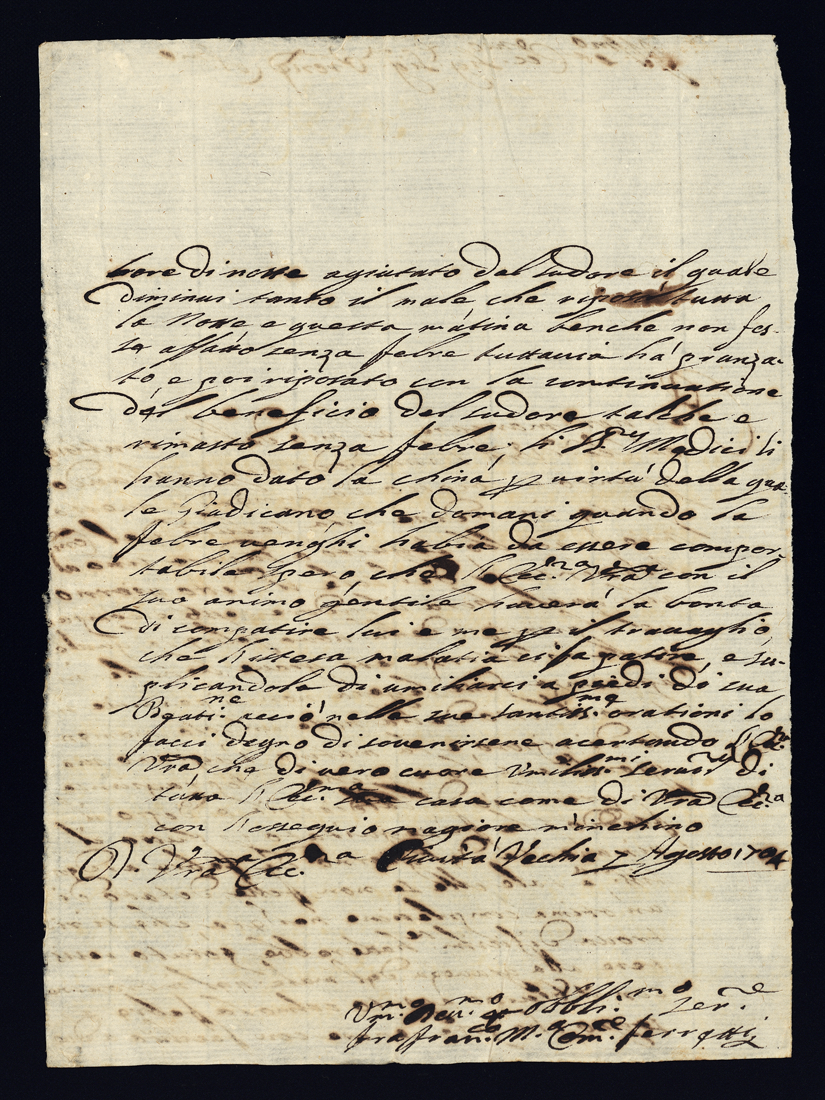 hore di notte agiutato del sudore il quale
diminui tanto il male che riposò tutta
la Notte e questa matina benche non fos-
se affatto senza febre tuttauia há pranza-
to, e poi riposato con la continuatione
del beneficio del sudore talche e
rimasto senza febre, li SS.ri Medici li
hanno dato la china p uirtu della qua-
le Giudicano che domani quando la
febre uenghi habia da essere compor-
tabile spero, che l'Ecc.za Vra con il
suo animo gentile hauerá la bonta
di compatire lui e me p il trauaglio,
che l'istessa malatia ci fa patire, e su-
plicandola di umiliarci a piedi di sua
Beati.ne acciò nelle sue santiss.me orationi lo
facci degno di souenirsene acertando l'Ecc.za
Vra, che di uero cuore di
tutta l'Ecc.ma casa come di Vra Ecc.za
con l'ossequio magiore m'inchino
D Vra Ecc.za Ciuità Vechia 7 Agosto 1704
Vm.mo Deu.mo et Obbli.mo Ser.e
fra fran.co M.a Com.re Ferretti